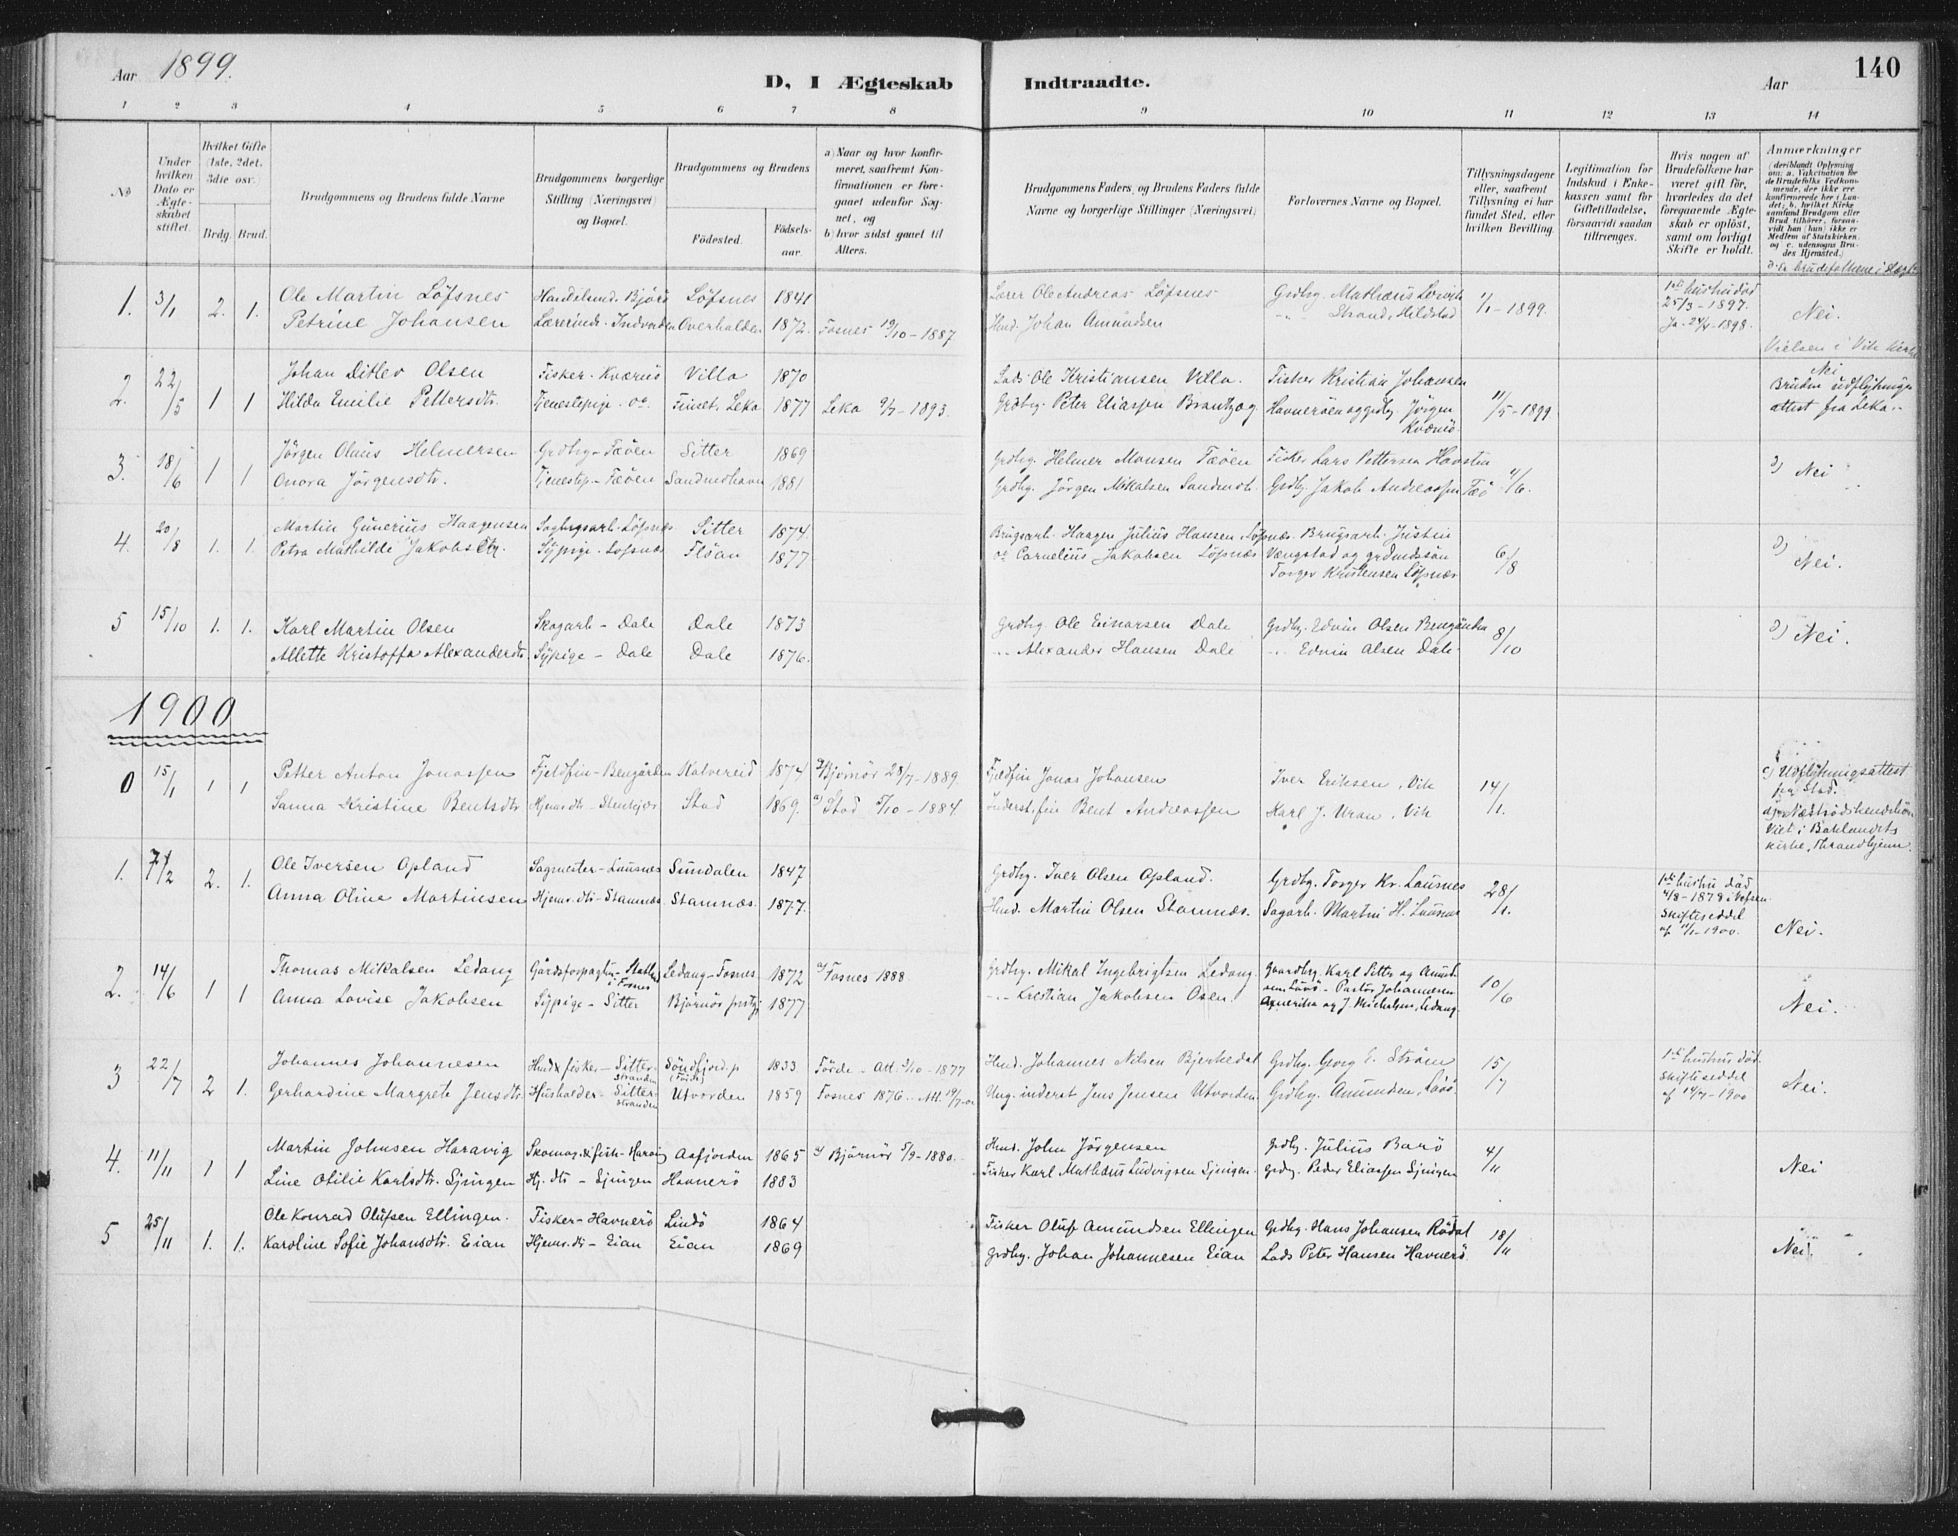 Aar 1899.
D, I Ægteskab Indtraadte.
Aar
140
1 2 3 4 5 6 7 8 9 10 11 12 13 14
No
Under hvilken Dato er Ægteskabet stiftet.
Hvilket Gifte (1ste, 2det, 3die osv.)
Brdg. Brud.
Brudgommens og Brudens fulde Navne
Brudgommens borgerlige Stilling (Næringsvei) og Bopæl.
Brudgommens og Brudens
Fødested.
Fødselsaar.
a) Naar og hvor konfirmeret, saafremt Konfirmationen er foregaaet udenfor Sognet, og
b) hvor sidst gaaet til Alters.
Brudgommens Faders, og Brudens Faders fulde Navne og borgerlige Stillinger (Næringsvei)
Forlovernes Navne og Bopæl.
Tillysningsdagene eller, saafremt Tillysning ei har fundet Sted, efter hvilken Bevilling.
Legitimation for Indskud i Enkekassen samt for Giftetilladelse, forsaavidt saadan tiltrænges.
Hvis nogen af Brudefolkene har været gift før, hvorledes da det foregaaende Ægteskab er opløst, samt om lovligt Skifte er holdt.
Anmærkninger
1. 3/1 2. 1. Ole Martin Löfsnes Handelsmd. Björö Löfsnes 1841 Lærer Ole Andreas Löfsnes Grdbg. Mathæus 1/1-1899. 1ste hustru död 25/3-1897.
Petrine Johansen Lærerinde-Indvorden Overhalden 1872. Fosnes 19/10-1887 Hmd. Johan Amundsen Strand, Hildstad Ja. 24/4-1898. Nei.
Vielsen i Vik Kirke
2. 22/5 1 1 Johan Ditlev Olsen Fisker-Kværnö Villa 1870 Lods Ole Kristiansen Villa. Fisker Kristian Johansen Nei
Hilda Emilie Pettersdtr. Tjenestepige-do. Leka 1877 Leka 9/7-1893. Grdbg. Peter Eliassen Havneröen og grdbg Jörgen Kværnö 11/5-1899 Bruden udflytningsattest fra Leka.
3. 18/6 1 1 Jörgen Olaus Helmersen Grdbrg-Tæöen Sitter 1869 Grdbg. Helmer Monsen Tæöen Fisker Lars Pettersen
Onora Jörgensdtr. Tjenestep-Tæöen Sandmohavn 1881 Grdbg. Jörgen Mikalsen Sandmoh. Grdbg. Jakob Andreassen Tæö 4/6. Nei
4. 20/8 1. 1. Martin Gunerius Haagensen Sagbrgsarb-Löfsnes Sitter 1874. Brugsarb. Haagen Julius Hansen Löfsnæs. Brugsarb. Justin
Petra Mathilde Jakobsdtr. Sypige-Lofsnæs Flöan 1877 og Cornelius Jakobsen Löfsnæs Vængstad og grdmdssön 6/8 Nei.
Torger Kristensen Löfsnæs
5 15/10 1. 1. Karl Martin Olsen Skogarb-Dale Dale 1873 Grdbg Ole Einarsen Dale Grdbg. Edvin Olsen 8/10 Nei.
Allette Kristoffa Alexanderdtr. Sypige-Dale Dale 1876. Alexander Hansen Dale Edvin Olsen Dale.
1900
0 15/1 1 1 Petter Anton Jonassen Fjeldfin-Bengården Kalvereid 1874 Bjørnör 28/7-1889 Fjeldfin Jonas Johansen Iver Eriksen, Vik 14/1. c) Udflytningsattest fra Stod.
Sanna Kristine Bentsdtr Hjemvdtr-Stenkjær Stod 1869. Stod 5/10-1884. Inderst, fin Bent Andreassen Karl J. Uran, Vik
Viet i Baklandets Kirke, Throndhjem.
1. 7/2 2. 1. Ole Iversen Opland Sagmester-Lausnes Sundalen 1847 Grdbg. Iver Olsen Opland. Grdbg. Torger Kr. Lausnes 28/1. 1ste hustru död 4/8-1878 i Vefsen
Anna Oline Martinsen Hjemv.dtr-Stamnæs. Stamnæs. 1877. Hmd. Martin Olsen Stamnæs. Sagarb. Martin H. Lausnes Skifteseddel af 11/1-1900. Nei.
2. 14/6 1 1 Thomas Mikalsen Ledang Gårdsforpagter i Fosnes Ledang-Fosnes 1872 a) Fosnes 1888 Grdbg. Mikal Ingebrigtsen Ledang Gaardbg. Karl Sitter og
Anna Lovise Jakobsen Sypige-Sitter Bjørnör prstgj 1877 Kristian Jakobsen Osen. Pastor Johannesen Amerika og J. Mikalsen, Ledang. 10/6 Nei.
3 22/7 2 1. Johannes Johannesen Hmd & fisker-Sitterstranden Söndfjord (Förde) 1833 Förde-Att. 9/10-1877 Hmd. Johannes Nilsen Bjerkedal Grdbg. Georg E. Ström 15/7 1ste hustru död
Gerhardine Margrete Jensdtr. Husholder-Sitterstranden Utvorden 1859 Fosnes 1876. Att. 19/7-00 Ung. inderst Jens Jensen Utvorden Grdbg. Amunden, Lavö Skifteseddel af 14/7-1900 Nei.
4. 11/11 1 1 Martin Johnsen Haravig Skomag. & fisk-Harvig Aafjorden 1865 a) Bjørnör 5/9-1880. Hmd. John Jörgensen Grdbg. Julius Barö 4/11 Nei
Line Otilie Karlsdtr. Sjingen Hj. dtr-Sjingen Havnerö 1883 Fisker Karl Mathæus Ludvigsen Sjingen. Grdbg. Peder Eliassen Sjingen
5 25/11 1. 1. Ole Konrad Olufsen Ellingen. Fisker-Havnerö Lindö 1864 Fisker Oluf Amundsen Ellingen Grdbg. Hans Johansen Rödal 18/11 Nei.
Karoline Sofie Johansdtr. Eian Hjemv.dtr-Eian Eian 1869 Grdbg. Johan Johannesen Eian Lods Peter Hansen Havnerö.